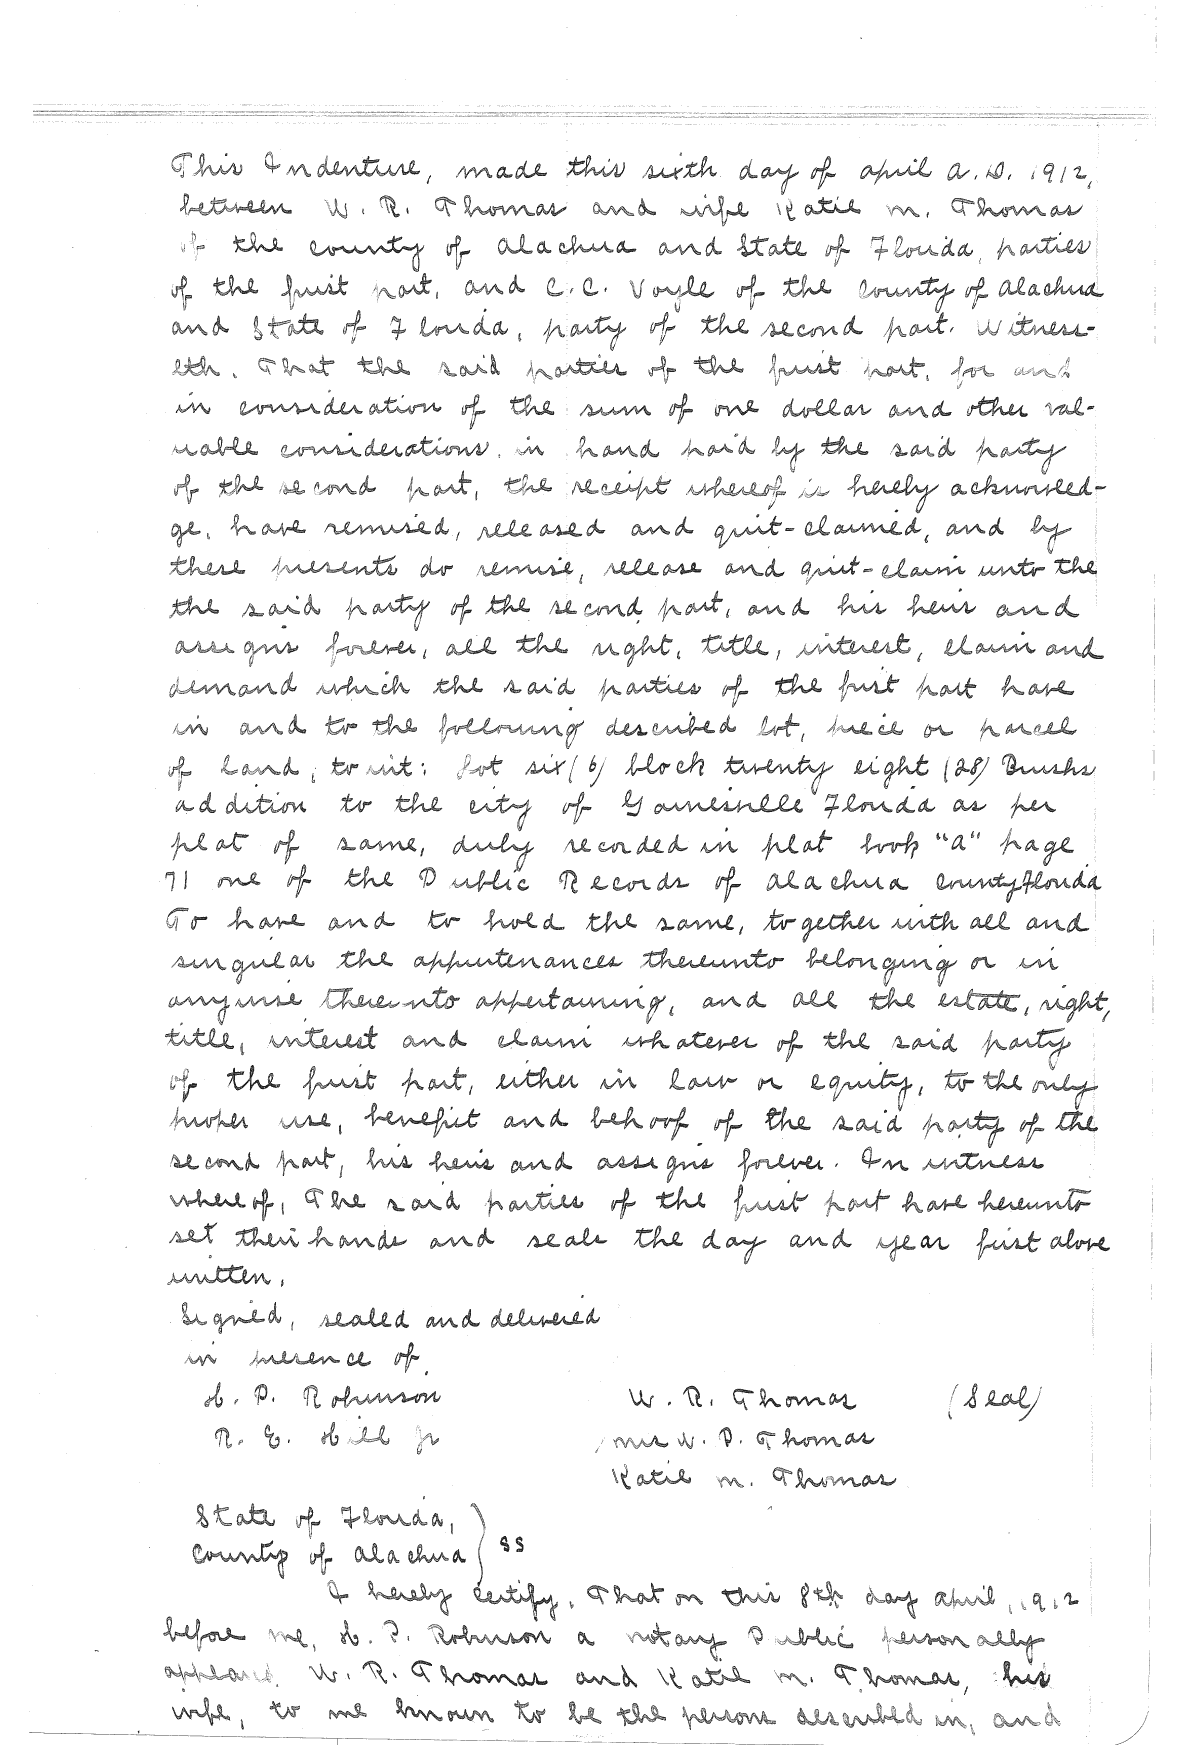 This Indenture, made this sixth day of april A.D. 1912,
between W. R. Thomas and wife Katie m. Thomas
of the county of Alachua and State of Florida, parties
of the first part, and C.C. Voyle of the County of Alachua
and State of Florida, party of the second part. Witness-
eth. That the said parties of the first part, for and
in consideration of the sum of one dollar and other val-
uable considerations, in hand paid by the said party
of the second part, the receipt whereof is hereby acknowled-
ge, have remised, released and quit-claimed, and by
these presents do remise, release and quit-claim unto the
the said party of the second part, and his heirs and
assigns forever, all the right, title, interest, claim and
demand which the said parties of the first part have
in and to the following described lot, piece or parcel
of land, to wit: Lot six (6) block twenty eight (28) Brushs
addition to the city of Gainesville Florida as per
plat of same, duly recorded in plat book "A" page
71 one of the Public Records of Alachua County Florida
To have and to hold the same, together with all and
singular the appurtenances thereunto belonging or in
anywise thereunto appertaining, and all the estate, right,
title, interest and claim whatever of the said party
of the first part, either in law or equity, to the only
proper use, benefit and behoof of the said party of the
second part, his heirs and assigns forever. In witness
whereof, The said parties of the first part have hereunto
set their hands and seals the day and year first above
written.
Signed, sealed and delivered
in presence of
H. P. Robinson W. R. Thomas (Seal)
R. E. Hill Jr mrs W. P. Thomas
Katie m. Thomas
State of Florida,
County of Alachua } SS
I hereby certify, That on this 8th day april, 1912
before me, H. P. Robinson a notary Public personally
appeared W. R. Thomas and Katie m. Thomas, his
wife, to me known to be the persons described in, and